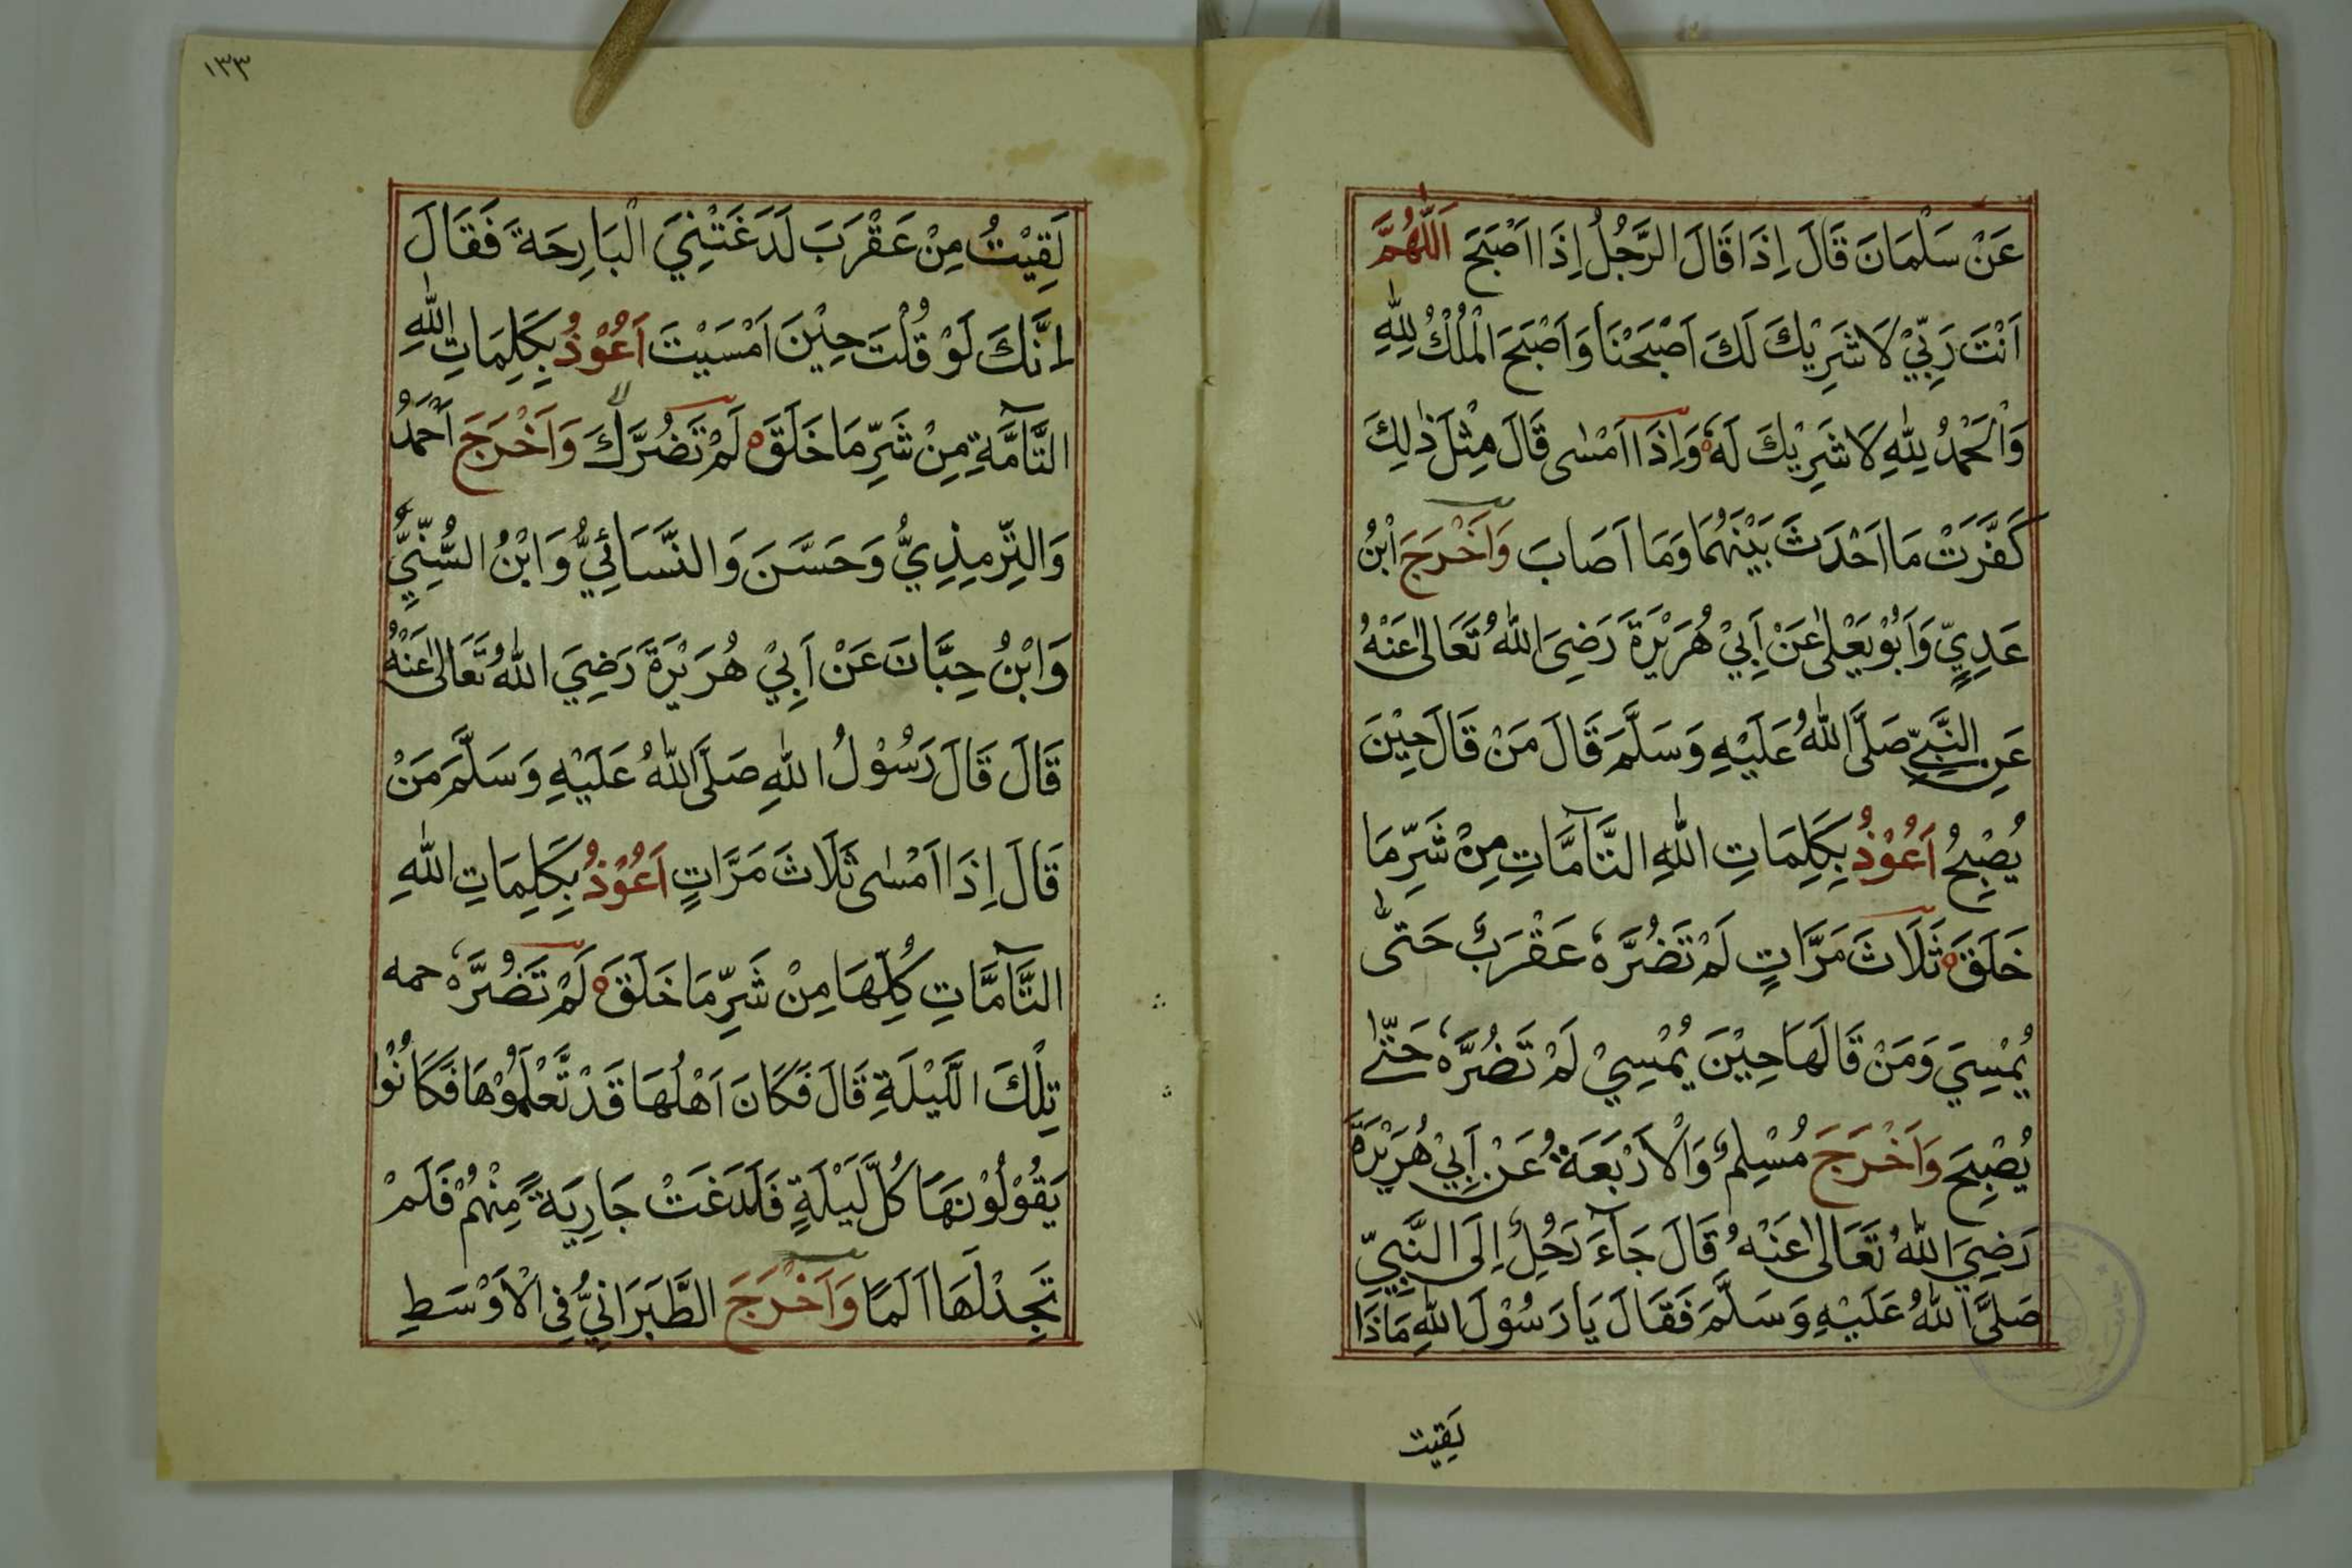 عَنْ سَلْمَانَ قَالَ اِذَا قَالَ الرَّجُلُ اِذَا اَصْبَحَ اَللّٰهُمَّ
اَنْتَ رَبِّيْ لَا شَرِيْكَ لَكَ اَصْبَحْنَا وَاَصْبَحَ الْمُلْكُ لِلّٰهِ
وَالْحَمْدُ لِلّٰهِ لَا شَرِيْكَ لَهٗ وَاِذَا اَمْسٰى قَالَ مِثْلَ ذٰلِكَ
كَفَّرَتْ مَا اَحْدَثَ بَيْنَهُمَا وَمَا اَصَابَ وَاَخْرَجَ ابْنُ
عَدِيٍّ وَاَبُوْ يَعْلٰى عَنْ اَبِيْ هُرَيْرَةَ رَضِيَ اللّٰهُ تَعَالٰى عَنْهُ
عَنِ النَّبِيِّ صَلَّى اللّٰهُ عَلَيْهِ وَسَلَّمَ قَالَ مَنْ قَالَ حِيْنَ
يُصْبِحُ اَعُوْذُ بِكَلِمَاتِ اللّٰهِ التَّآمَّاتِ مِنْ شَرِّ مَا
خَلَقَ ثَلَاثَ مَرَّاتٍ لَمْ تَضُرَّهٗ عَقْرَبٌ حَتّٰى
يُمْسِيَ وَمَنْ قَالَهَا حِيْنَ يُمْسِيْ لَمْ تَضُرَّهٗ حَتّٰى
يُصْبِحَ وَاَخْرَجَ مُسْلِمٌ وَالْاَرْبَعَةُ عَنْ اَبِيْ هُرَيْرَةَ
رَضِيَ اللّٰهُ تَعَالٰى عَنْهُ قَالَ جَآءَ رَجُلٌ اِلَى النَّبِيِّ
صَلَّى اللّٰهُ عَلَيْهِ وَسَلَّمَ فَقَالَ يَا رَسُوْلَ اللّٰهِ مَاذَا
لَقِيْت
١٣٣
لَقِيْتُ مِنْ عَقْرَبَ لَدَغَتْنِيَ الْبَارِحَةَ فَقَالَ
اِنَّكَ لَوْ قُلْتَ حِيْنَ اَمْسَيْتَ اَعُوْذُ بِكَلِمَاتِ اللّٰهِ
التَّآمَّةِ مِنْ شَرِّ مَا خَلَقَ لَمْ تَضُرَّكَ وَاَخْرَجَ اَحْمَدُ
وَالتِّرْمِذِيُّ وَحَسَّنَ وَالنَّسَائِيُّ وَابْنُ السُّنِّيِّ
وَابْنُ حِبَّانَ عَنْ اَبِيْ هُرَيْرَةَ رَضِيَ اللّٰهُ تَعَالٰى عَنْهُ
قَالَ قَالَ رَسُوْلُ اللّٰهِ صَلَّى اللّٰهُ عَلَيْهِ وَسَلَّمَ مَنْ
قَالَ اِذَا اَمْسٰى ثَلَاثَ مَرَّاتٍ اَعُوْذُ بِكَلِمَاتِ اللّٰهِ
التَّآمَّاتِ كُلِّهَا مِنْ شَرِّ مَا خَلَقَ لَمْ تَضُرَّهٗ حمه
تِلْكَ الَّيْلَةِ قَالَ فَكَانَ اَهْلُهَا قَدْ تَّعْلَمُوْهَا فَكَانُوْا
يَقُوْلُوْنَهَا كُلَّ لَيْلَةٍ فَلَدَغَتْ جَارِيَةً مِّنْهُمْ فَلَمْ
تَجِدْ لَهَا اَلَمًا وَاَخْرَجَ الطَّبَرَانِيُّ فِي الْاَوْسَطِ